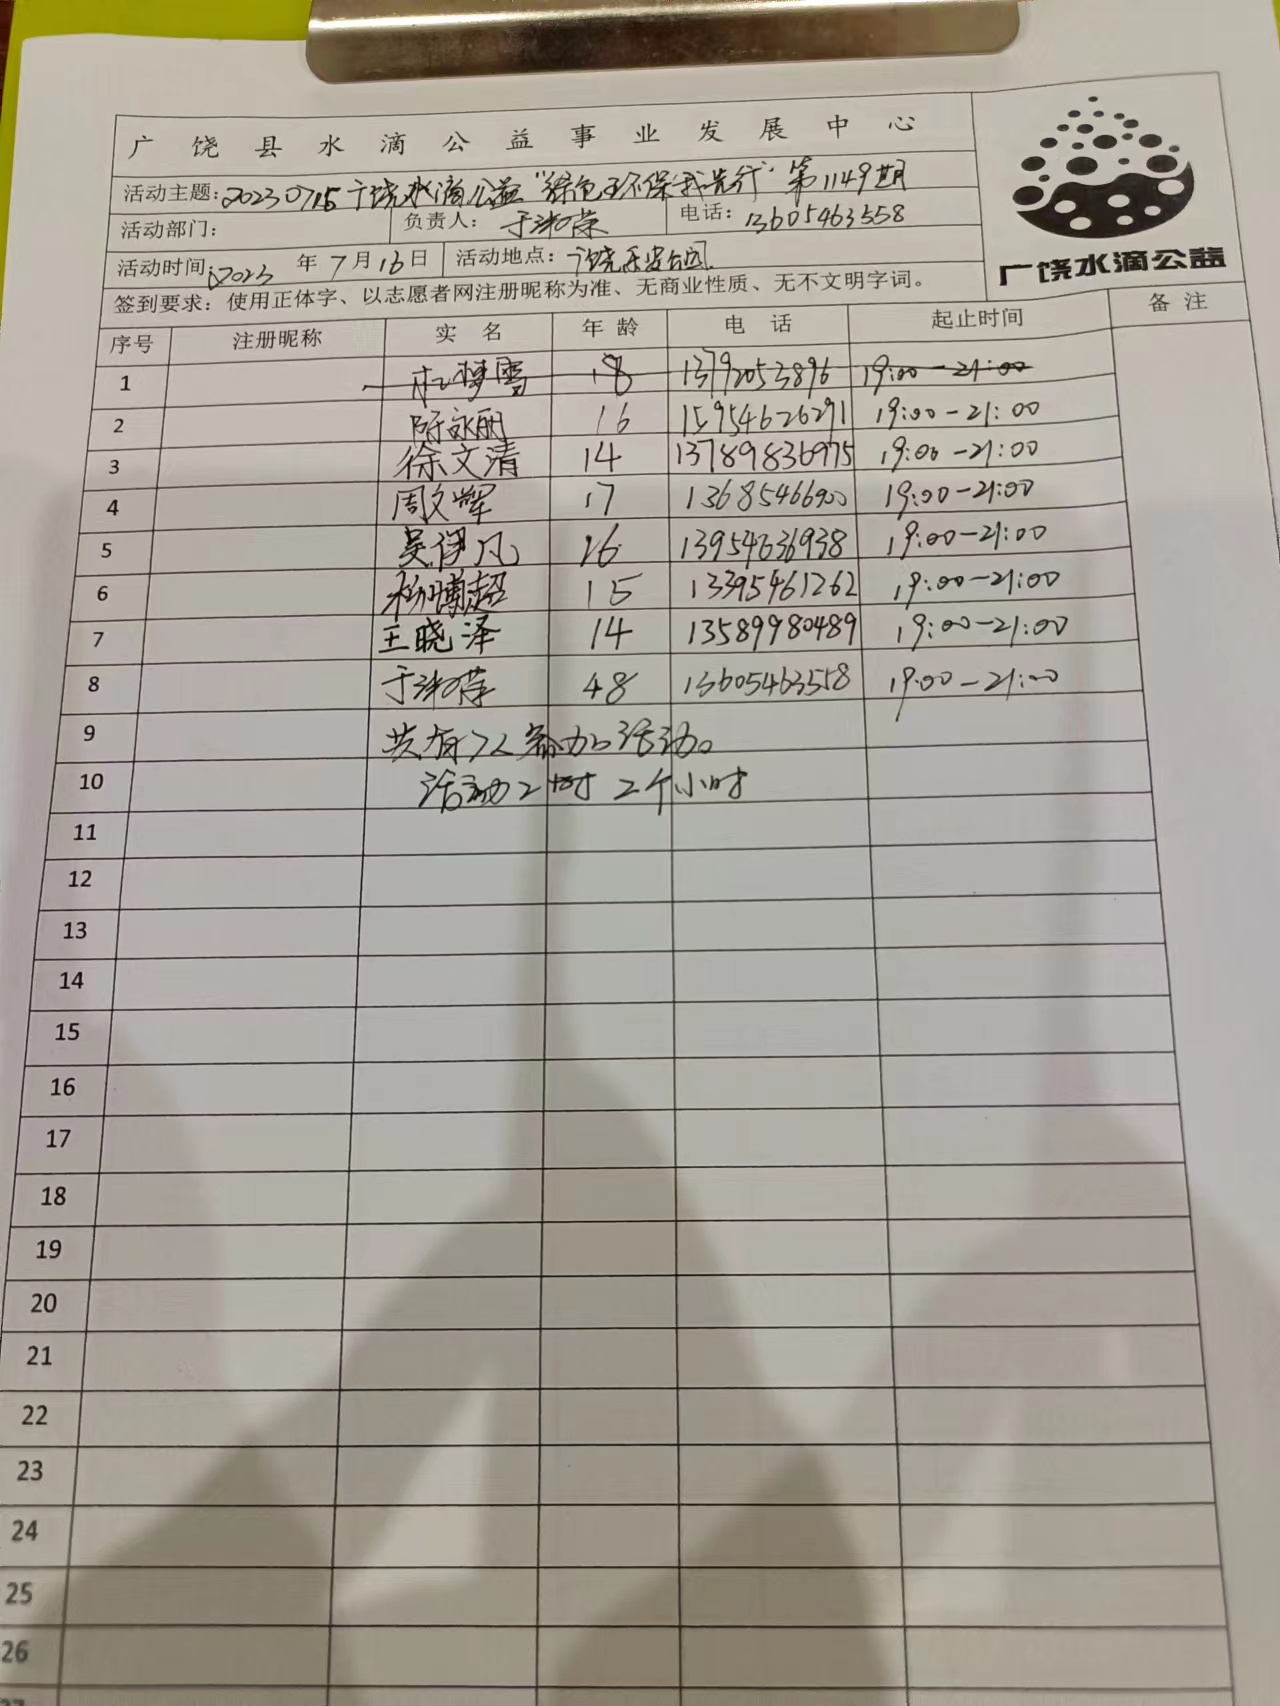 广饶县水滴公益事业发展中心
活动主题: 20230715广饶水滴公益"绿色环保我先行"第1149期
活动部门: 负责人: 于 荣 电话: 13605463558
活动时间: 2023年7月16日 活动地点: 广饶乐安公园
签到要求: 使用正体字、以志愿者网注册昵称为准、无商业性质、无不文明字词。
广饶水滴公益
序号 注册昵称 实名 年龄 电话 起止时间 备注
1 梦雪 18 13792053896 19:00-21:00
2 陈永丽 16 15954626291 19:00-21:00
3 徐文清 14 13789836975 19:00-21:00
4 周文辉 17 13685466900 19:00-21:00
5 吴伊凡 16 13954636938 19:00-21:00
6 杨博超 15 13395461262 19:00-21:00
7 王晓泽 14 13589980489 19:00-21:00
8 于 荣 48 13605463558 19:00-21:00
9 共有7人参加活动。
10 活动 时2个小时
11
12
13
14
15
16
17
18
19
20
21
22
23
24
25
26